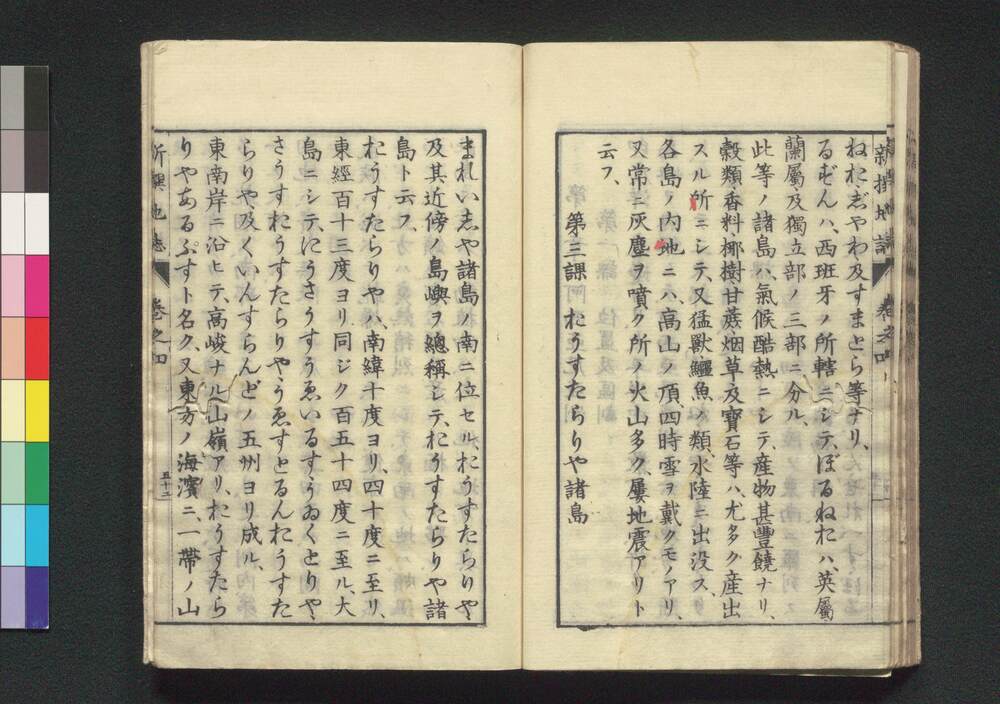 ねお、志やわ及すまとら等ナリ、
るぞんハ、西班牙ノ所轄ニシテ、ぼるねおハ、英屬
蘭屬、及獨立部ノ三部ニ分ル、
此等ノ諸島ハ、氣候酷熱ニシテ、產物甚豐饒ナリ、
穀類、香料、椰樹、甘蔗、烟草、及寶石等ハ、尤多ク產出
スル所ニシテ、又猛獸、鱷魚ノ類、水陸ニ出没ス、
各島ノ内地ニハ、高山ノ頂、四時雪ヲ戴クモノアリ、
又常ニ灰塵ヲ噴ク所ノ火山多ク、屢地震アリト
云フ、
第三課 おうすたらりや諸島
まれい志や諸島ノ南ニ位セル、おうすたらりや
及其近傍ノ島嶼ヲ總稱シテ、おうすたらりや諸
島ト云フ、
おうすたらりやハ、南緯十度ヨリ、四十度ニ至リ、
東經百十三度ヨリ同ジク百五十四度ニ至ル、大
島ニシテ、にうさうすうゑいるす、うゐくとりや、
さうすおうすたらりや、うゑすとるんおうすた
らりや、及くいんすらんどノ五州ヨリ成ル、
東南岸ニ沿ヒテ、高峻ナル山嶺アリ、おうすたら
りやあるぷすト名ク、又東方ノ海濱ニ、一帶ノ山
新撰地誌 卷之四 五十二